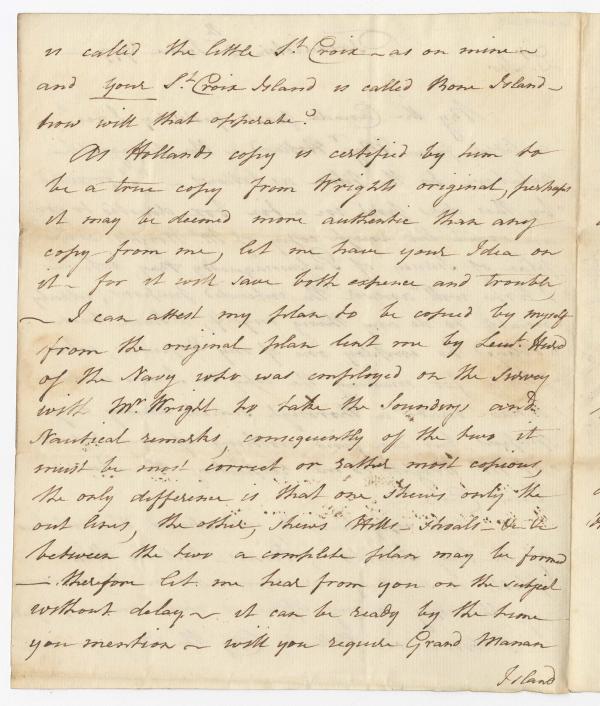 is called the little St Croix - as on mine -
and your St Croix Island is called Bone Island -
how will that opperate?
As Hollands copy is certified by him to
be a true copy from Wrights original, perhaps
it may be deemed more authentic than any
copy from me, let me have your Idea on
it - for it will save both expence and trouble,
- I can attest my plan to be copied by myself
from the original plan lent me by Leut. Hurd
of the Navy who was employed on the survey
with Mr. Wright to take the Soundings and
Nautical remarks, consequently of the two it
must be most correct or rather most copious,
the only difference is that one shews only the
out lines, the other, shews Hills - shoals - &c &c
between the two a complete plan may be formed
- therefore let me hear from you on the subject
without delay - it can be ready by the time
you mention - will you require Grand Manan
Island